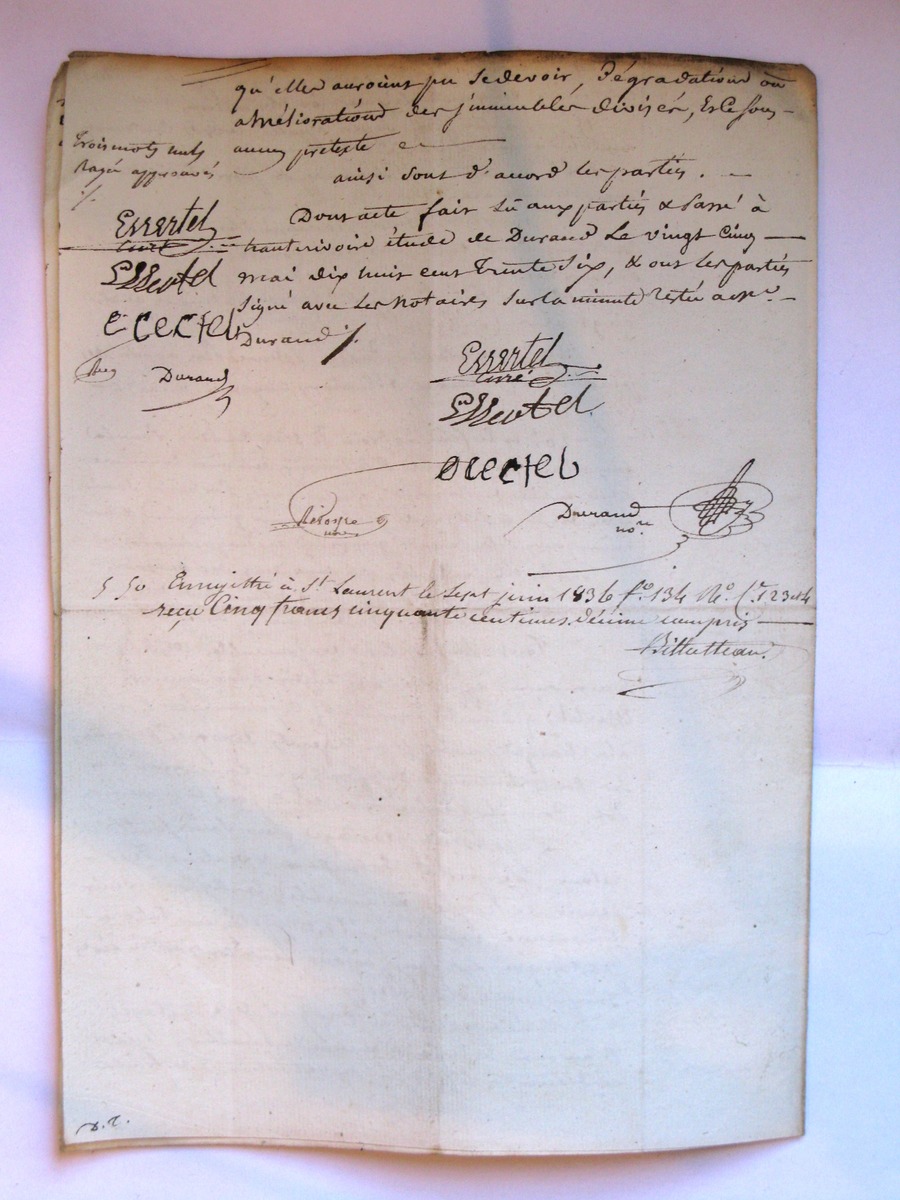 qu'elles auroient pu se devoir, dégradations ou
améliorations des jmmeubles divisés, Et ce sous
aucun pretexte
ainsi sont d'accord les parties.
Trois mots nuls
rayés approuvés
Dont acte fait lû aux parties & passé à
hauterivoire étude de Durand Le vingt cinq
mai dix huit cent Trente Six, & ont les parties
signé avec Les notaires sur la minute restée a Me.
Durand
Essertel
curé
Essertel
Durand
Essertel
curé
Essertel
Durand
nore.
5 50 Enregistré à St Laurent le Sept juin 1836 fo. 134 Ro. Ces 1 2 3 et 4
reçu Cinq francs cinquante centimes, décime compris
D. T.